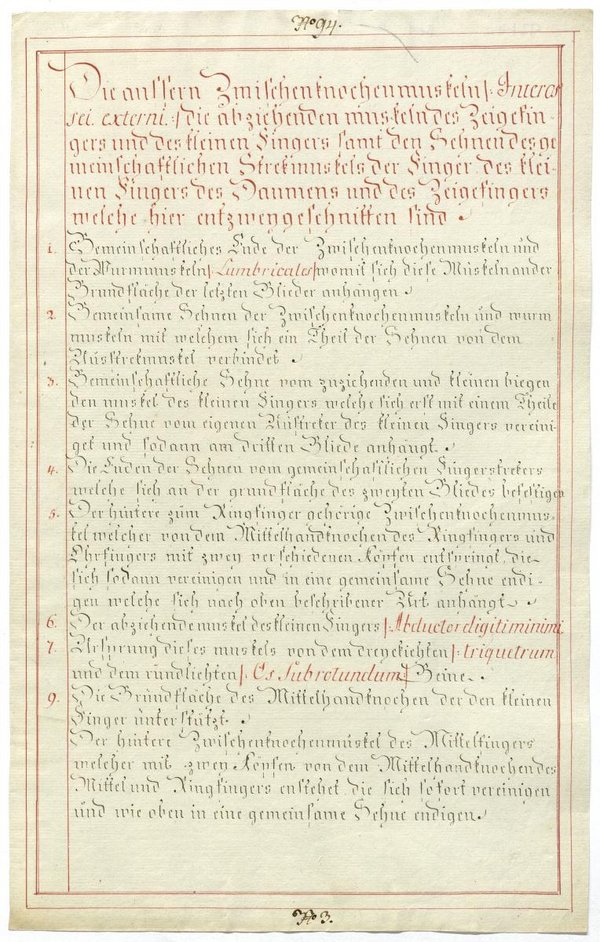 No 94.
Die äussern Zwischenknochenmuskeln /: Interos
sei externi :/ die abziehenden muskeln des Zeigefin-
gers und des kleinen Fingers samt den Sehnen des ge
meinschaftlichen Strekmuskels der Finger, des klei-
nen Fingers des Daumens und des Zeigefingers
welche hier entzweygeschnitten sind.
1. Gemeinschaftliches Ende der Zwischenknochenmuskeln und
der Wurmmuskeln /: Lumbricales :/ womit sich diese Muskeln an der
Grundfläche der letzten Glieder anhängen.
2. Gemeinsame Sehnen der Zwischenknochenmuskeln und wurm
muskeln mit welchem sich ein Theil der Sehnen von dem
Ausstrekmuskel verbindet.
3. Gemeinschaftliche Sehne vom zuziehenden und kleinen biegen
den muskel des kleinen Fingers welche sich erst mit einem Theile
der Sehne vom eigenen Austreker des kleinen Fingers vereini-
get und sodann am dritten Gliede anhängt.
4. Die Enden der Sehnen vom gemeinschaftlichen Fingerstrekers
welche sich an der grundfläche des zweyten Gliedes befestigen
5. Der hintere zum Ringfinger gehörige Zwischenknochenmus-
kel welcher von dem Mittelhandknochen des Ringfingers und
Ohrfingers mit zwey verschiedenen Köpfen entspringt, die
sich sodann vereinigen und in eine gemeinsame Sehne endi-
gen welche sich nach oben beschribener Art anhängt.
6. Der abziehende muskel des kleinen Fingers /: Abductor digiti minimi
7. Ursprung dieses muskels von dem dreyekichten /: triquetrum
und dem rundlichten /: Os Subrotundum :/ Beine.
9. Die Grundfläche des Mittelhandknochen der den kleinen
Finger unterstützt.
Der hintere Zwischenknochenmuskel des Mittelfingers
welcher mit zwey Köpfen von dem Mittelhandknochen des
Mittel und Ringfingers entstehet die sich sofort vereinigen
und wie oben in eine gemeinsame Sehne endigen.
No 3.